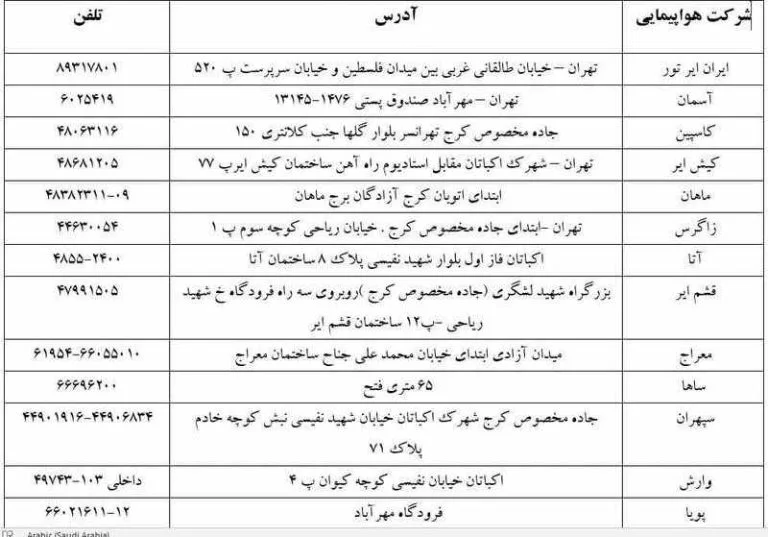 شرکت هواپیمایی آدرس تلفن
ایران ایر تور تهران – خیابان طالقانی غربی بین میدان فلسطین و خیابان سرپرست پ ۵۲۰ ۸۹۳۱۷۸۰۱
آسمان تهران – مهر آباد صندوق پستی ۱۴۷۶-۱۳۱۴۵ ۶۰۲۵۴۱۹
کاسپین جاده مخصوص کرج تهرانسر بلوار گلها جنب کلانتری ۱۵۰ ۴۸۰۶۳۱۱۶
کیش ایر تهران – شهرک اکباتان مقابل استادیوم راه آهن ساختمان کیش ایرپ ۷۷ ۴۸۶۸۱۲۰۵
ماهان ابتدای اتوبان کرج آزادگان برج ماهان ۴۸۳۸۲۳۱۱-۰۹
زاگرس تهران -ابتدای جاده مخصوص کرج . خیابان ریاحی کوچه سوم پ ۱ ۴۴۶۳۰۰۵۴
آتا اکباتان فاز اول بلوار شهید نفیسی پلاک ۸ ساختمان آتا ۴۸۵۵-۲۴۰۰
قشم ایر بزرگراه شهید لشگری (جاده مخصوص کرج )روبروی سه راه فرودگاه خ شهید ۴۷۹۹۱۵۰۵
ریاحی -پ۱۲ ساختمان قشم ایر
معراج میدان آزادی ابتدای خیابان محمد علی جناح ساختمان معراج ۶۱۹۵۴-۶۶۰۵۵۰۱۰
ساها ۶۵ متری فتح ۶۶۶۹۶۲۰۰
سپهران جاده مخصوص کرج شهرک اکباتان خیابان شهید نفیسی نبش کوچه خادم ۴۴۹۰۱۹۱۶-۴۴۹۰۶۸۳۴
پلاک ۷۱
وارش اکباتان خیابان نفیسی کوچه کیوان پ ۴ داخلی ۱۰۳-۴۹۷۴۳
پویا فرودگاه مهر آباد ۶۶۰۲۱۶۱۱-۱۲
Arabic (Saudi Arabia)